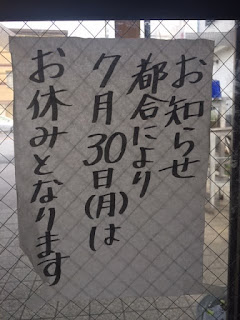 お知らせ
都合により
7月30日(月)は
お休みとなります